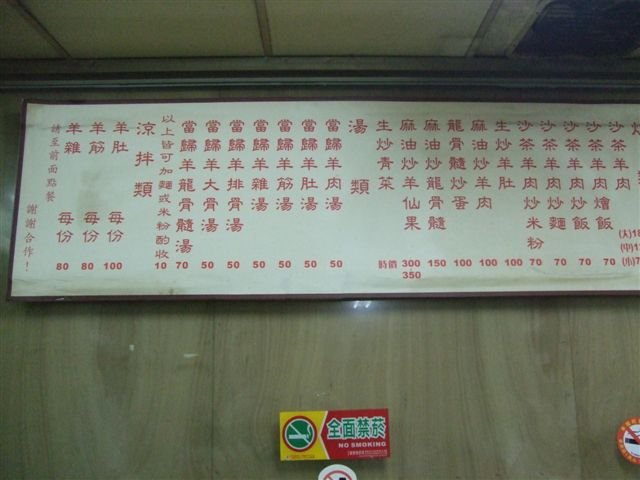 沙茶羊肉燴飯 70
沙茶羊肉炒飯 70
沙茶羊肉炒麵 70
沙茶羊肉炒米粉 70
生炒羊肚 100
麻油炒羊肉 100
龍骨髓炒蛋 100
麻油炒龍骨髓 150
麻油炒羊仙果 300 350
生炒青菜 時價
湯類
當歸羊肉湯 50
當歸羊肚湯 50
當歸羊筋湯 50
當歸羊雜湯 50
當歸羊排骨湯 50
當歸羊大骨湯 50
當歸羊龍骨髓湯 70
以上皆可加麵或米粉酌收 10
涼拌類
羊肚 每份 100
羊筋 每份 80
羊雜 每份 80
請至前面點餐
謝謝合作！
全面禁菸
NO SMOKING